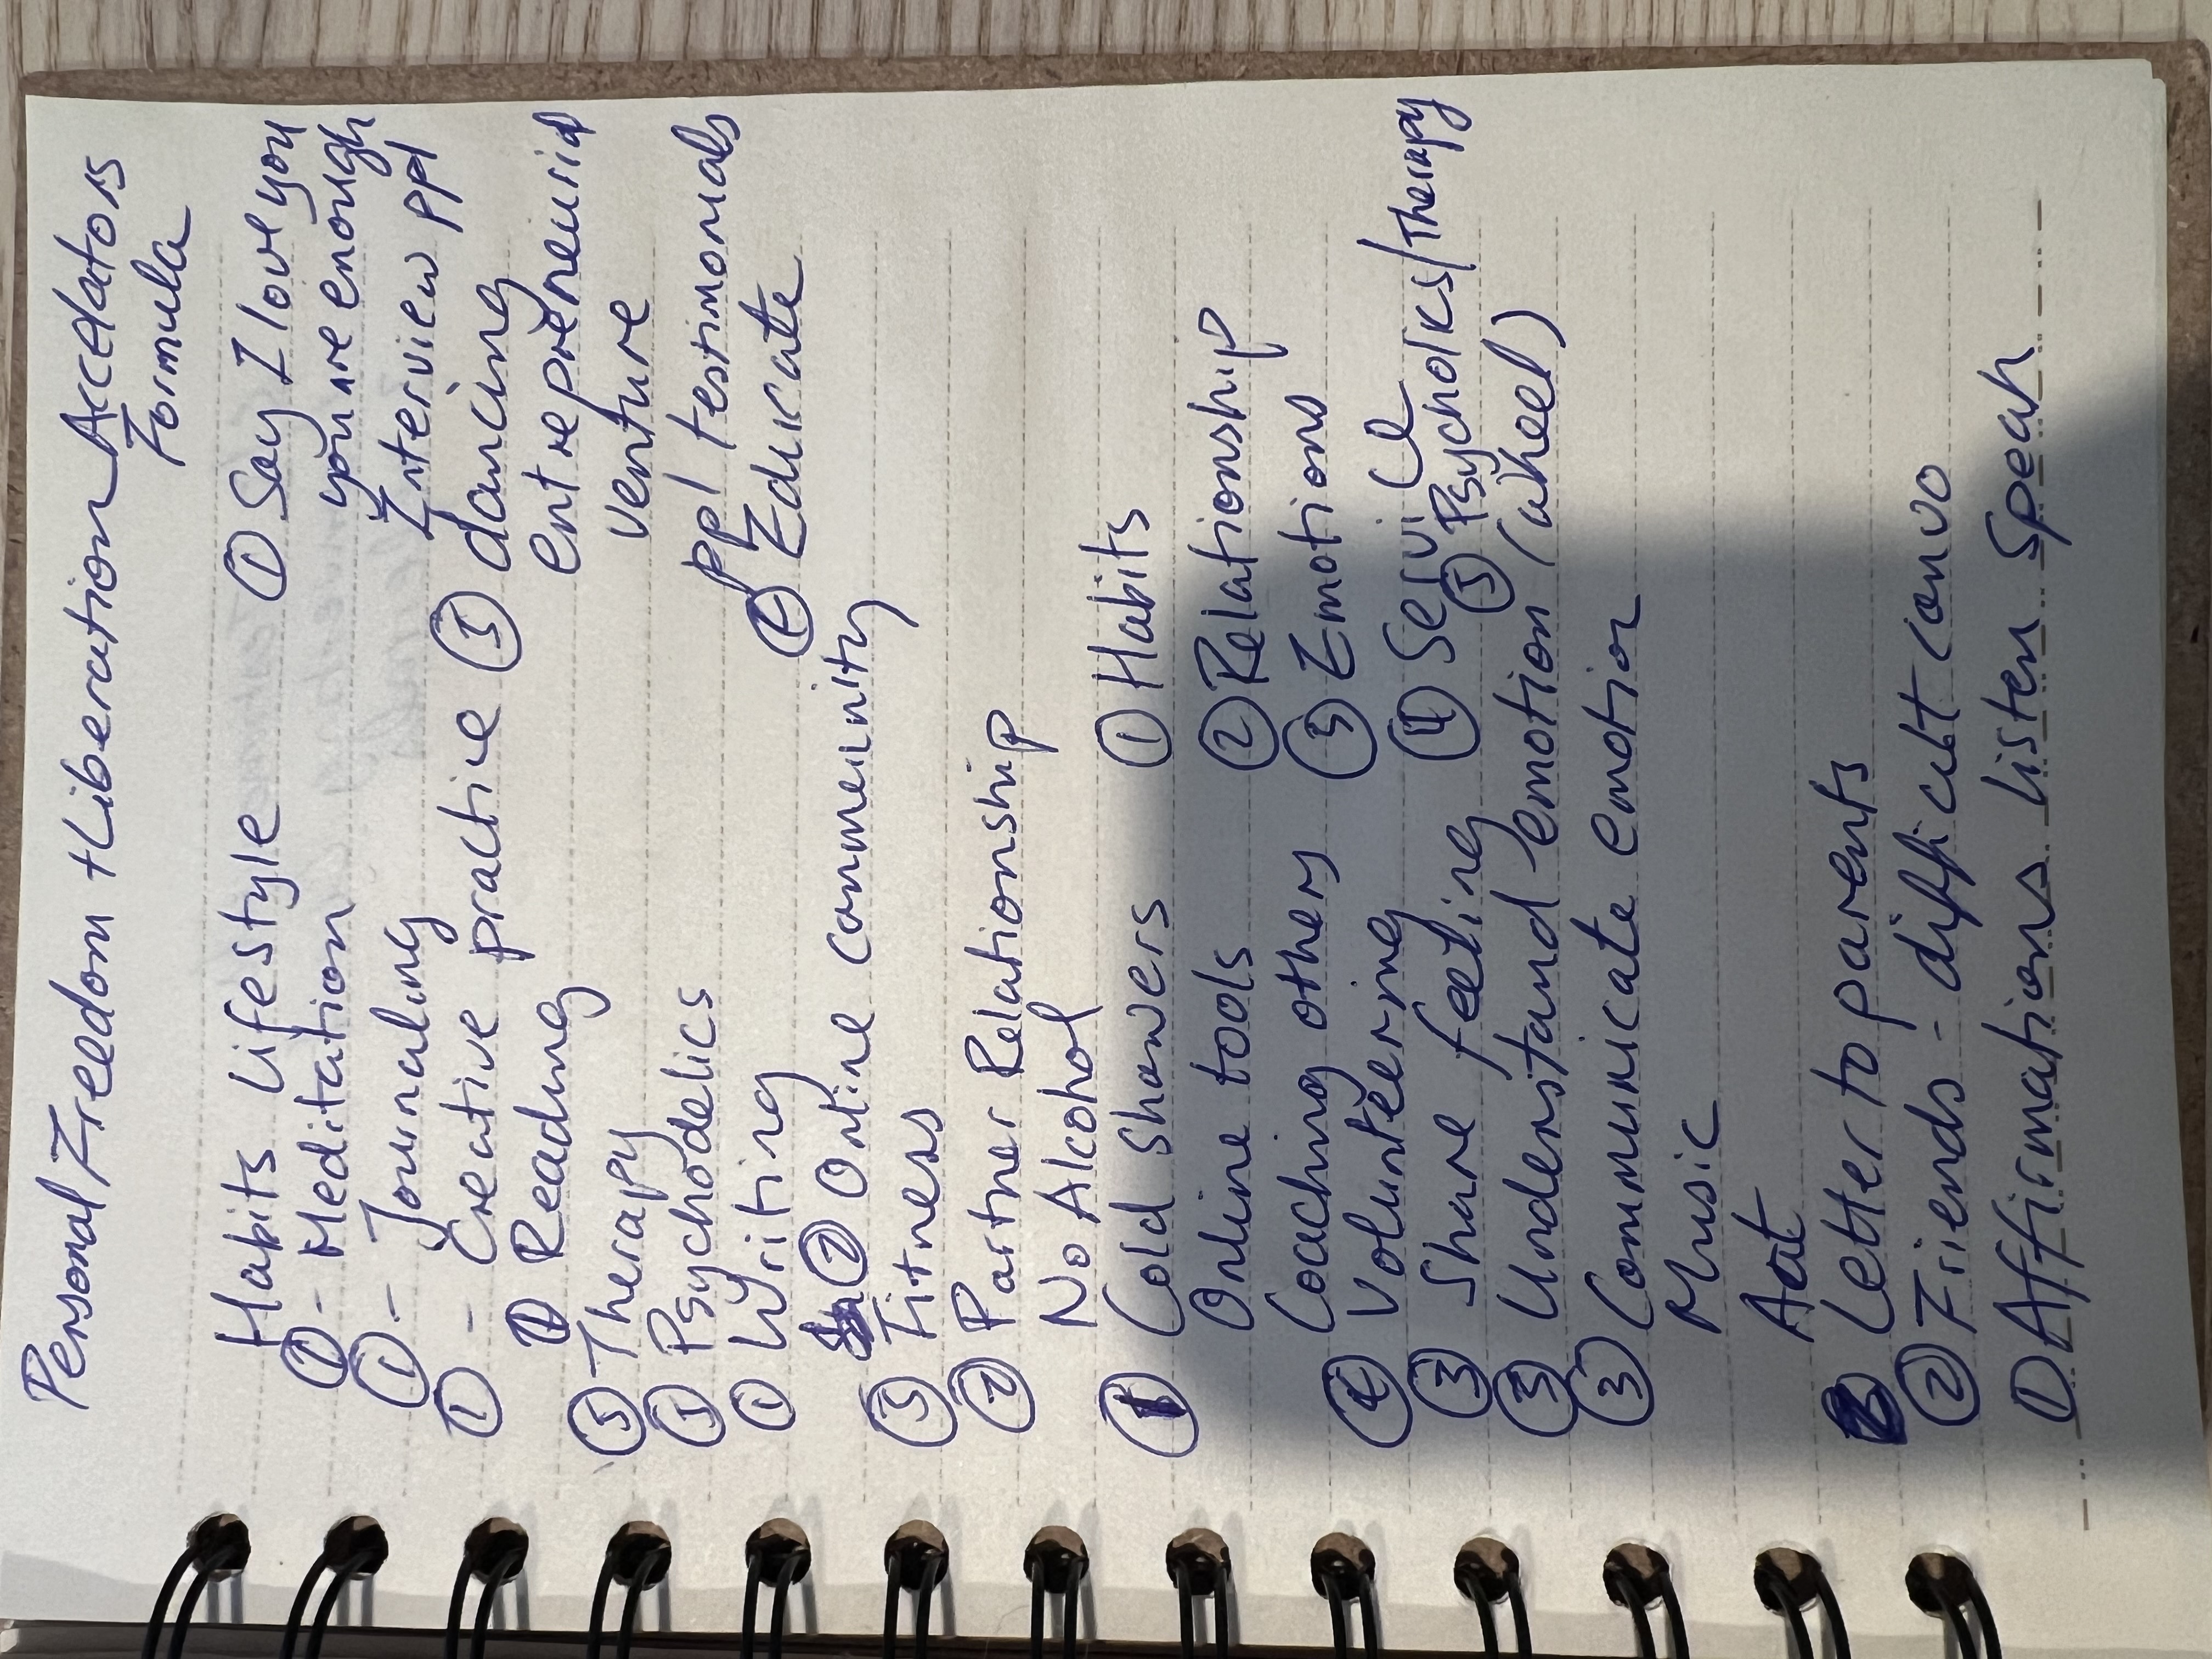 Personal Freedom + Liberation Accelators
Formula
Habits Lifestyle
① - Meditation
① - Journaling
① - Creative practice
① Reading
⑤ Therapy
⑤ Psychodelics
① Writing
② Online community
③ Fitness
② Partner Relationship
No Alcohol
① Cold showers
Online tools
Coaching others
④ Volunteering
③ Share feeling
③ Understand emotion (wheel)
③ Communicate emotion
Music
Art
② Letter to parents
② Friends - difficult convo
① Affirmations listen speak
① Say I love you
you are enough
Interview ppl
⑤ dancing
entrepreneurial
venture
ppl testimonials
④ Educate
① Habits
② Relationship
③ Emotions
④ Service
⑤ Psychdics/Therapy